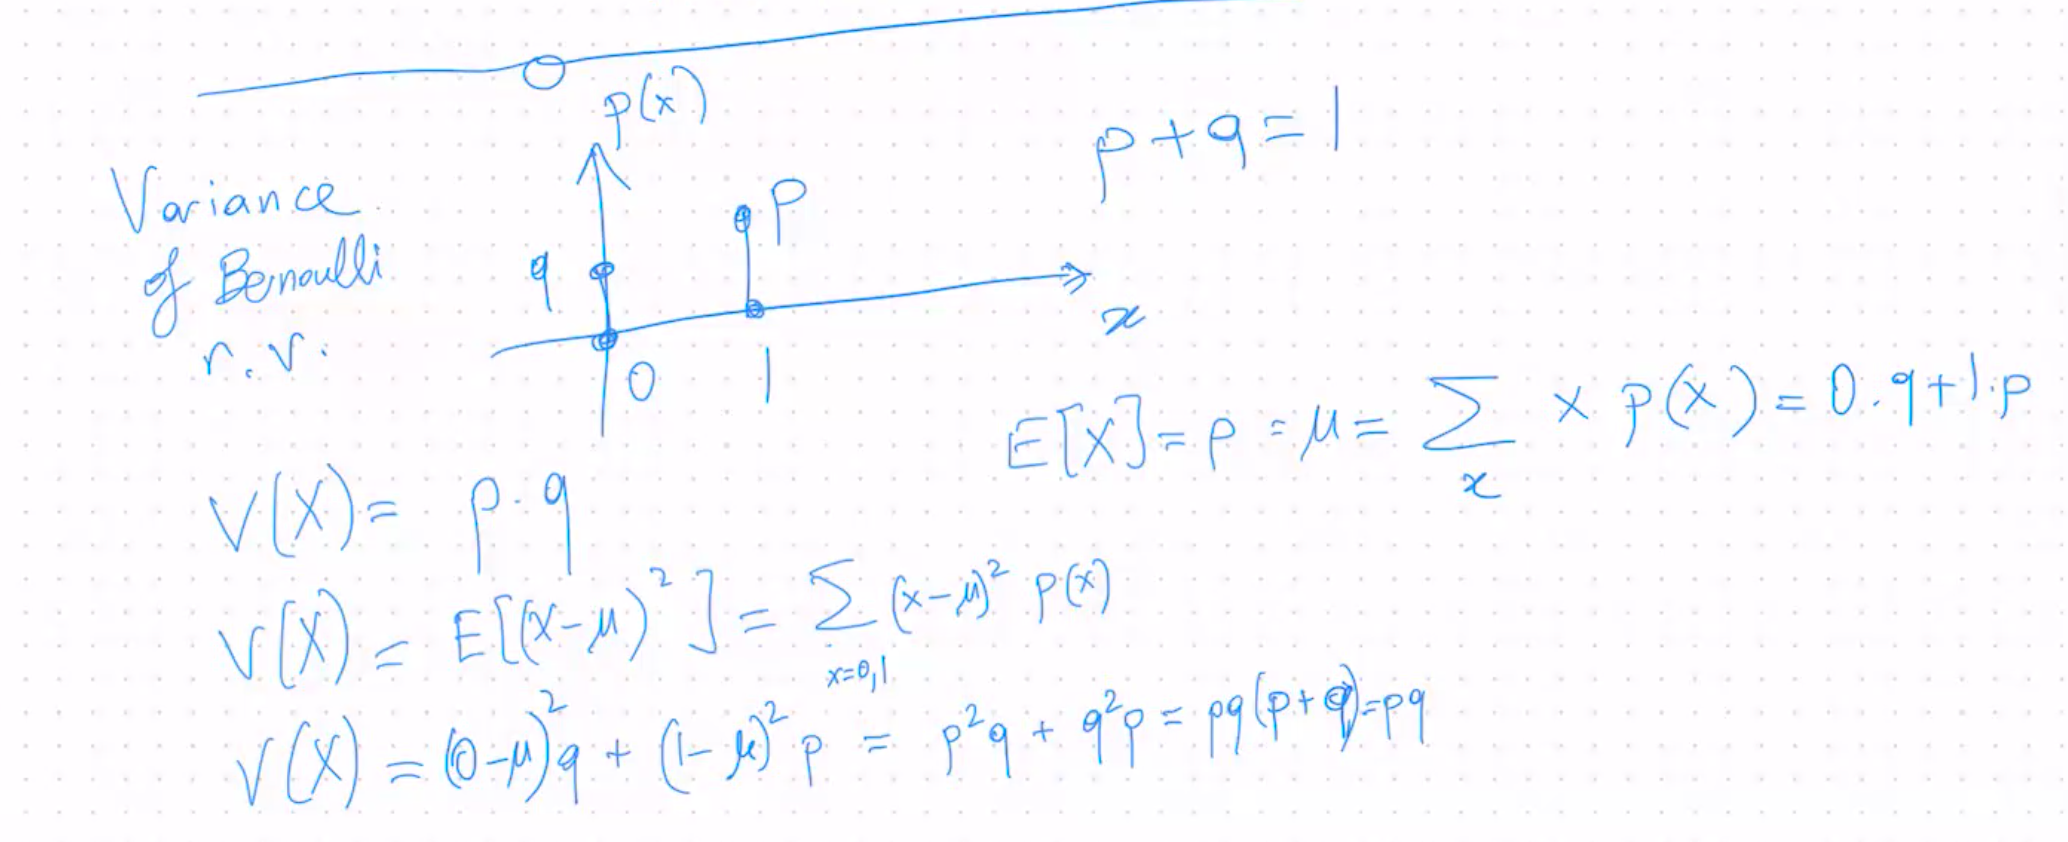 Variance
of Bernoulli
r.v.
p(x)
p + q = 1
p
q
x
0
1
E[X] = p = μ = ∑ₓ x p(x) = 0·q + 1·p
V(X) = p·q
V(X) = E[(X-μ)²] = ∑ (x-μ)² p(x)
x=0,1
V(X) = (0-μ)²q + (1-μ)²p = p²q + q²p = pq(p+q)=pq